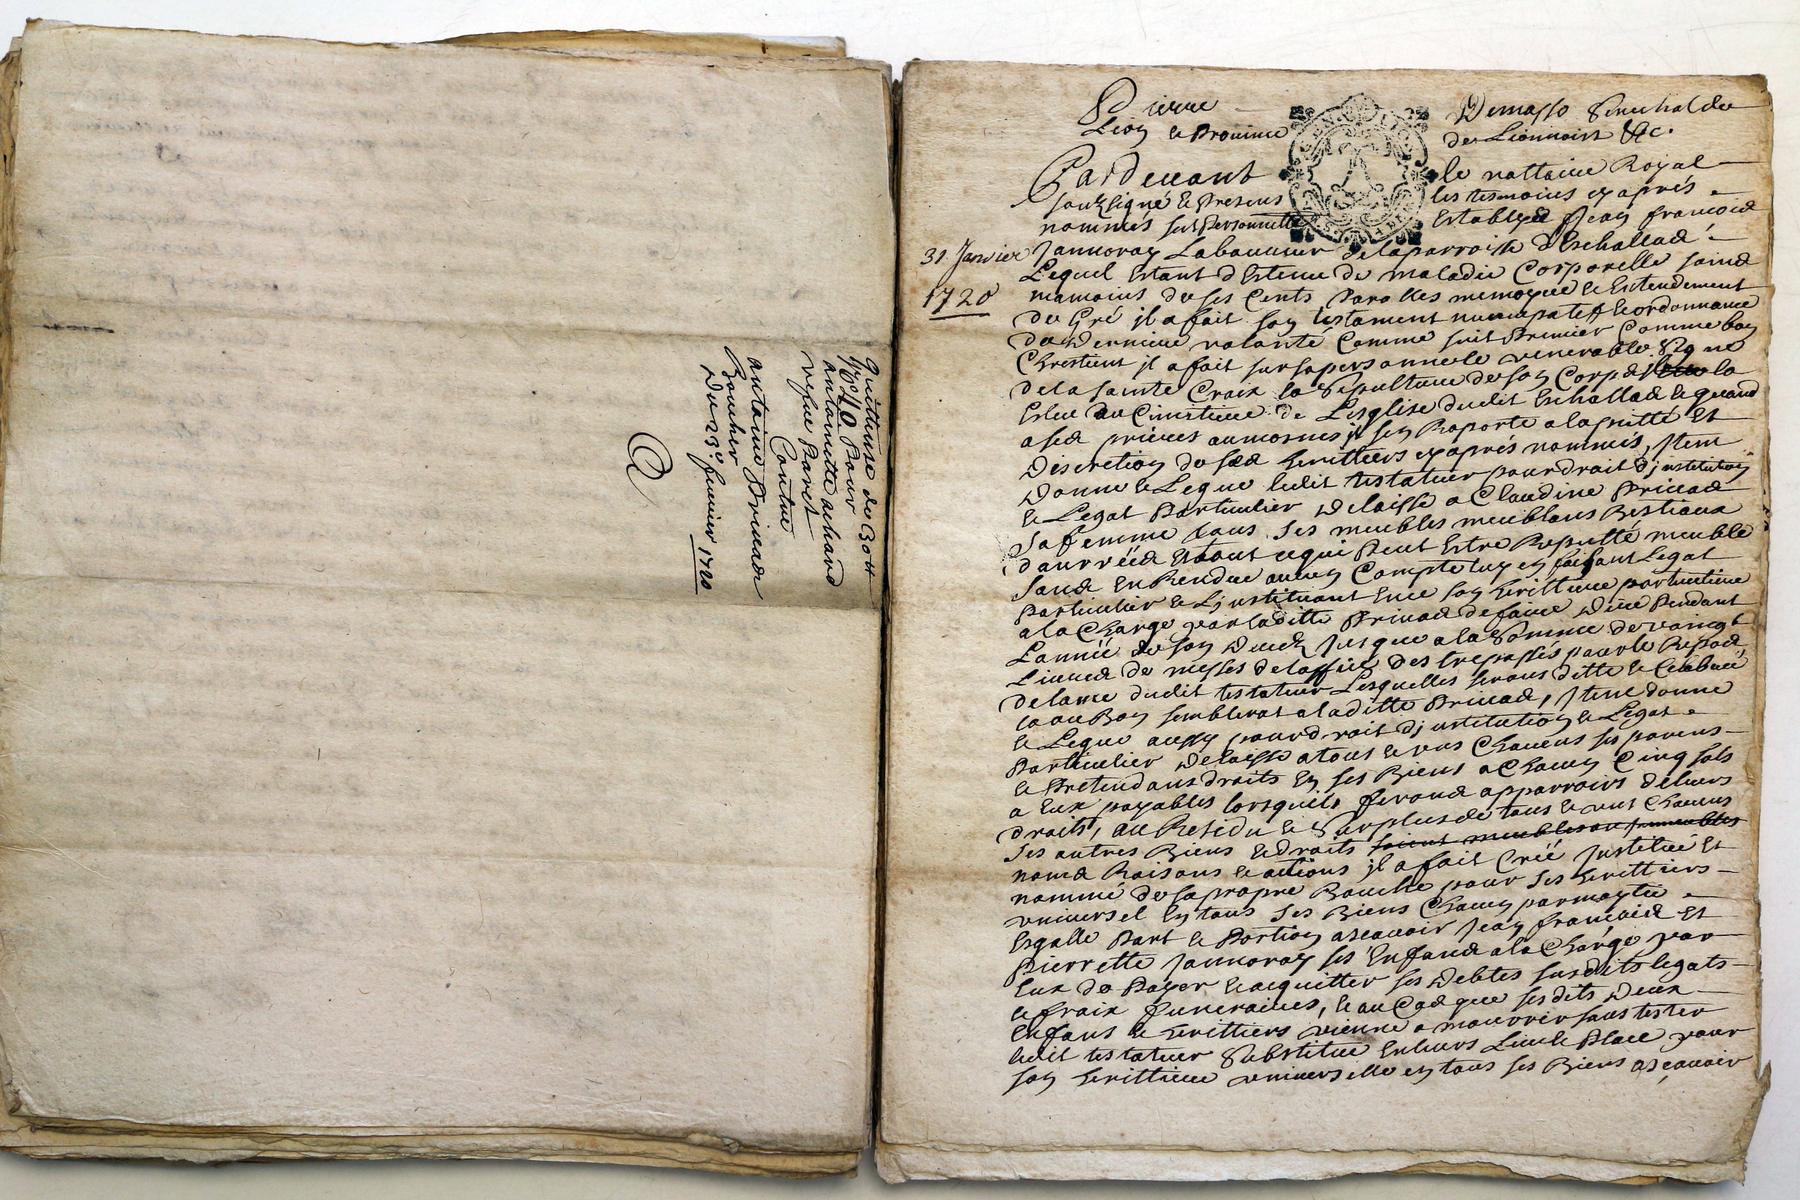 Quittance de 30 ll
pour
antoinette achard
vefue Barest
Contre
antoine Brivadz
Boucher
Du 23e feurier 1720
Pierre Demasso Senechal de
Lion & Prouince de Lionnois &c.
Pardeuant le nottaire Royal
souzsigné & Presens les tesmoins cy aprés
nommés fut Personnellem Establyd Jean françois
31 Janvier
1720
Jannoray Laboureur de la parroisse d'Eschallad
Lequel Estant destenu de maladie Corporelle saind
mamoins de ses Cents Parolles memoyre & Entendement
de Gré il a fait son testament nuncupatif & ordonnance
de Derniere volonté Comme suit Premier Comme bon
Chrestient il a fait sur sa personne le venerable Signe
de la Sainte Croix la Sepulture de son Corpd la
Eslue au Cimitiere de L'esglise dudit Eschallad & quand
a sed priéres aumornes il sen Raporte a la pitté Et
Discretion de sed herittiers cy aprés nommés, Item
Donne & Legue ledit testateur pour droit d'institution
& Legat Particulier Delaisse a Claudine Brivad
Sa femme tous ses meubles meublans Bestiaux
danrréed & tout ce qui Peut Estre Reputté meuble
sand En Rendre aucun Compte luy en faisant Legat
Particulier & L'instituant Ence son herittiere particuliere
a la Charge par laditte Brivad de faire Dire Pendant
L'année de son Decedz Jusque a la Somme de vaingt
Liured de messes de loffice des trepassés pour le Repod
de lame dudit testateur Lesquelles serons ditte & Célébréé
ca ou Bon semblerat a laditte Brivad, Item donne
& Legue aussy pour droit d'institution & Legat
Particulier Delaisse a tous & uns Chacuns ses parens
& Pretendans droits En ses Biens a Chacun Cinq sols
a Eux payables lorsquils ferond apparroirs de leurs
droits, au Residu & Surplus de tous & uns Chacuns
ses autres Biens & droits soient meubles ou immeubles
nomd Raisons & actions il a fait Créé Institué Et
nommé de sa propre Bouche pour ses herittiers
vniversel En tous ses Biens Chacun par moytié
Esgalle Part & Portion ascauoir Jean françois Et
Pierrette Jannoray ses Enfand a la Charge par
Eux de Payer & acquitter ses Debtes susdits legats
& fraix funeraires, & au Cad que sesdits Deux
Enfans & herittiers vienne a mourrir sans tester
ledit testateur Substitue En leurs Lieu & Place pour
son herittiere vniverselle en tous ses Biens ascauoir